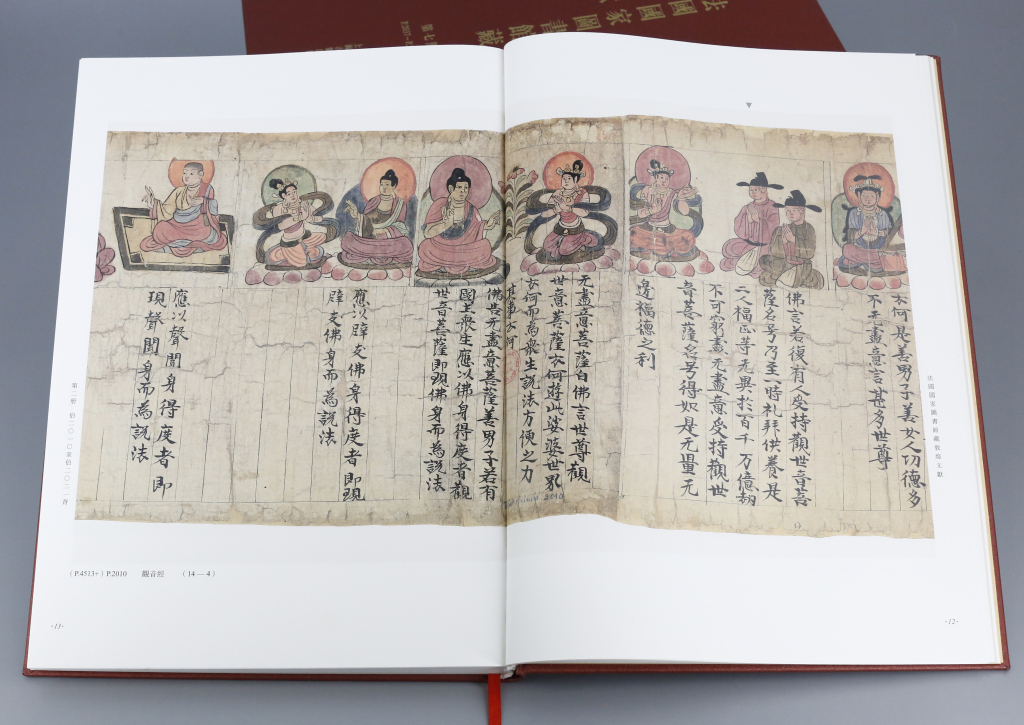 法國國家圖書館藏
法國國家圖書館藏敦煌文獻
云何是善男子善女人功德多
不无盡意言甚多世尊
佛言若復有人受持觀世音菩
薩名号乃至一時礼拜供養是
二人福正等无異於百千万億劫
不可窮盡无盡意受持觀世
音菩薩名号得如是无量无
邊福德之利
无盡意菩薩白佛言世尊觀
世音菩薩云何遊此娑婆世界
云何而為衆生說法方便之力
其事云何
佛告无盡意菩薩善男子若有
國土衆生應以佛身得度者觀
世音菩薩即現佛身而為說法
應以辟支佛身得度者即現
辟支佛身而為說法
應以聲聞身得度者即
現聲聞身而為說法
第二冊 伯二〇一〇至伯二〇二一背
(P.4513+) P.2010 觀音經 (14—4)
·12·
·13·